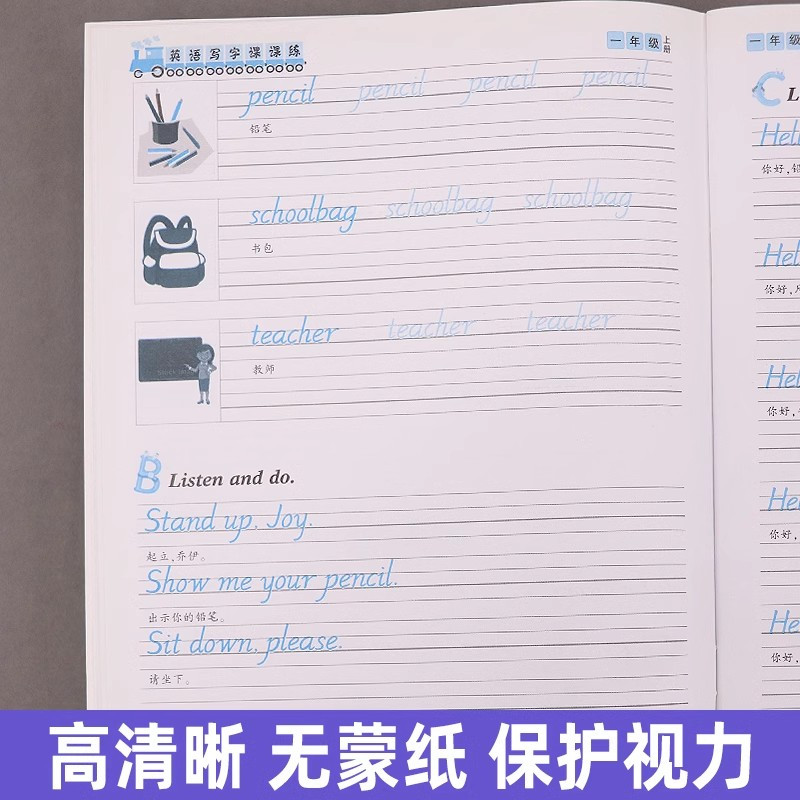 英语写字课课练
一年级上册
pencil pencil pencil pencil
铅笔
schoolbag schoolbag schoolbag
书包
teacher teacher teacher
教师
B Listen and do.
Stand up, Joy.
起立,乔伊。
Show me your pencil.
出示你的铅笔。
Sit down, please.
请坐下。
一年级
C L
Hel
你好,
Hel
你好,
Hel
你好,
Hel
你好,
He
你好,
高清晰 无蒙纸 保护视力